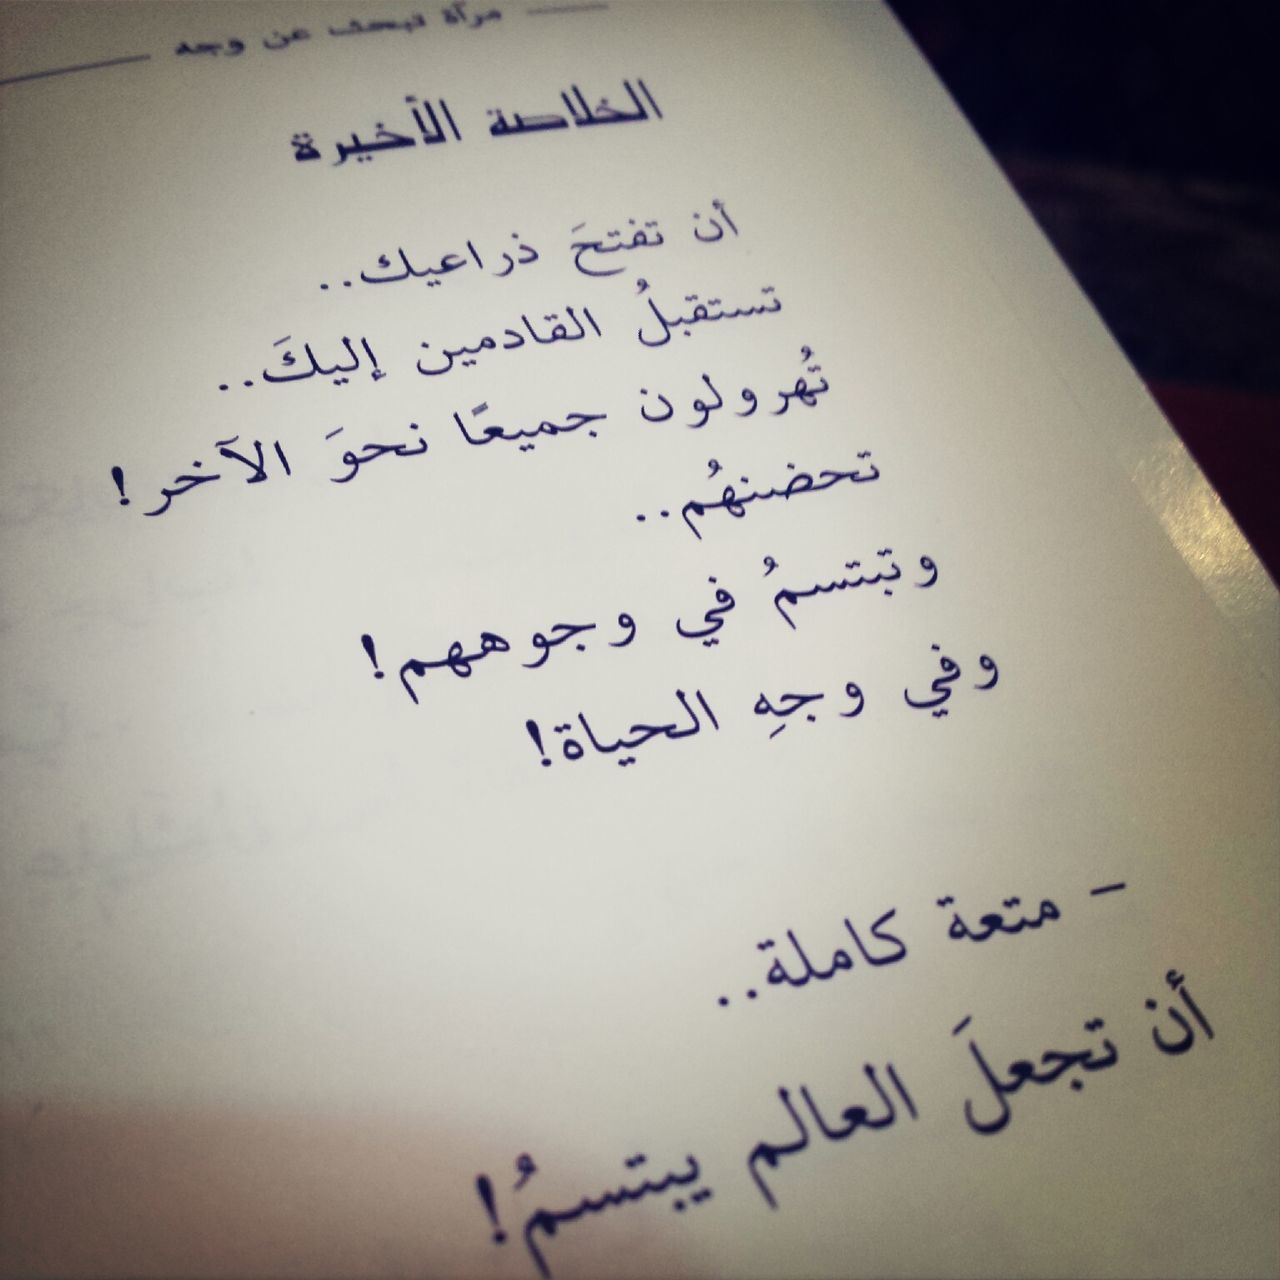 مرآة تبحث عن وجه
الخلاصة الأخيرة
أن تفتحَ ذراعيك..
تستقبلُ القادمين إليكَ..
تُهرولون جميعًا نحوَ الآخر!
تحضنهُم..
وتبتسمُ في وجوههم!
وفي وجهِ الحياة!
- متعة كاملة..
أن تجعلَ العالم يبتسمُ!